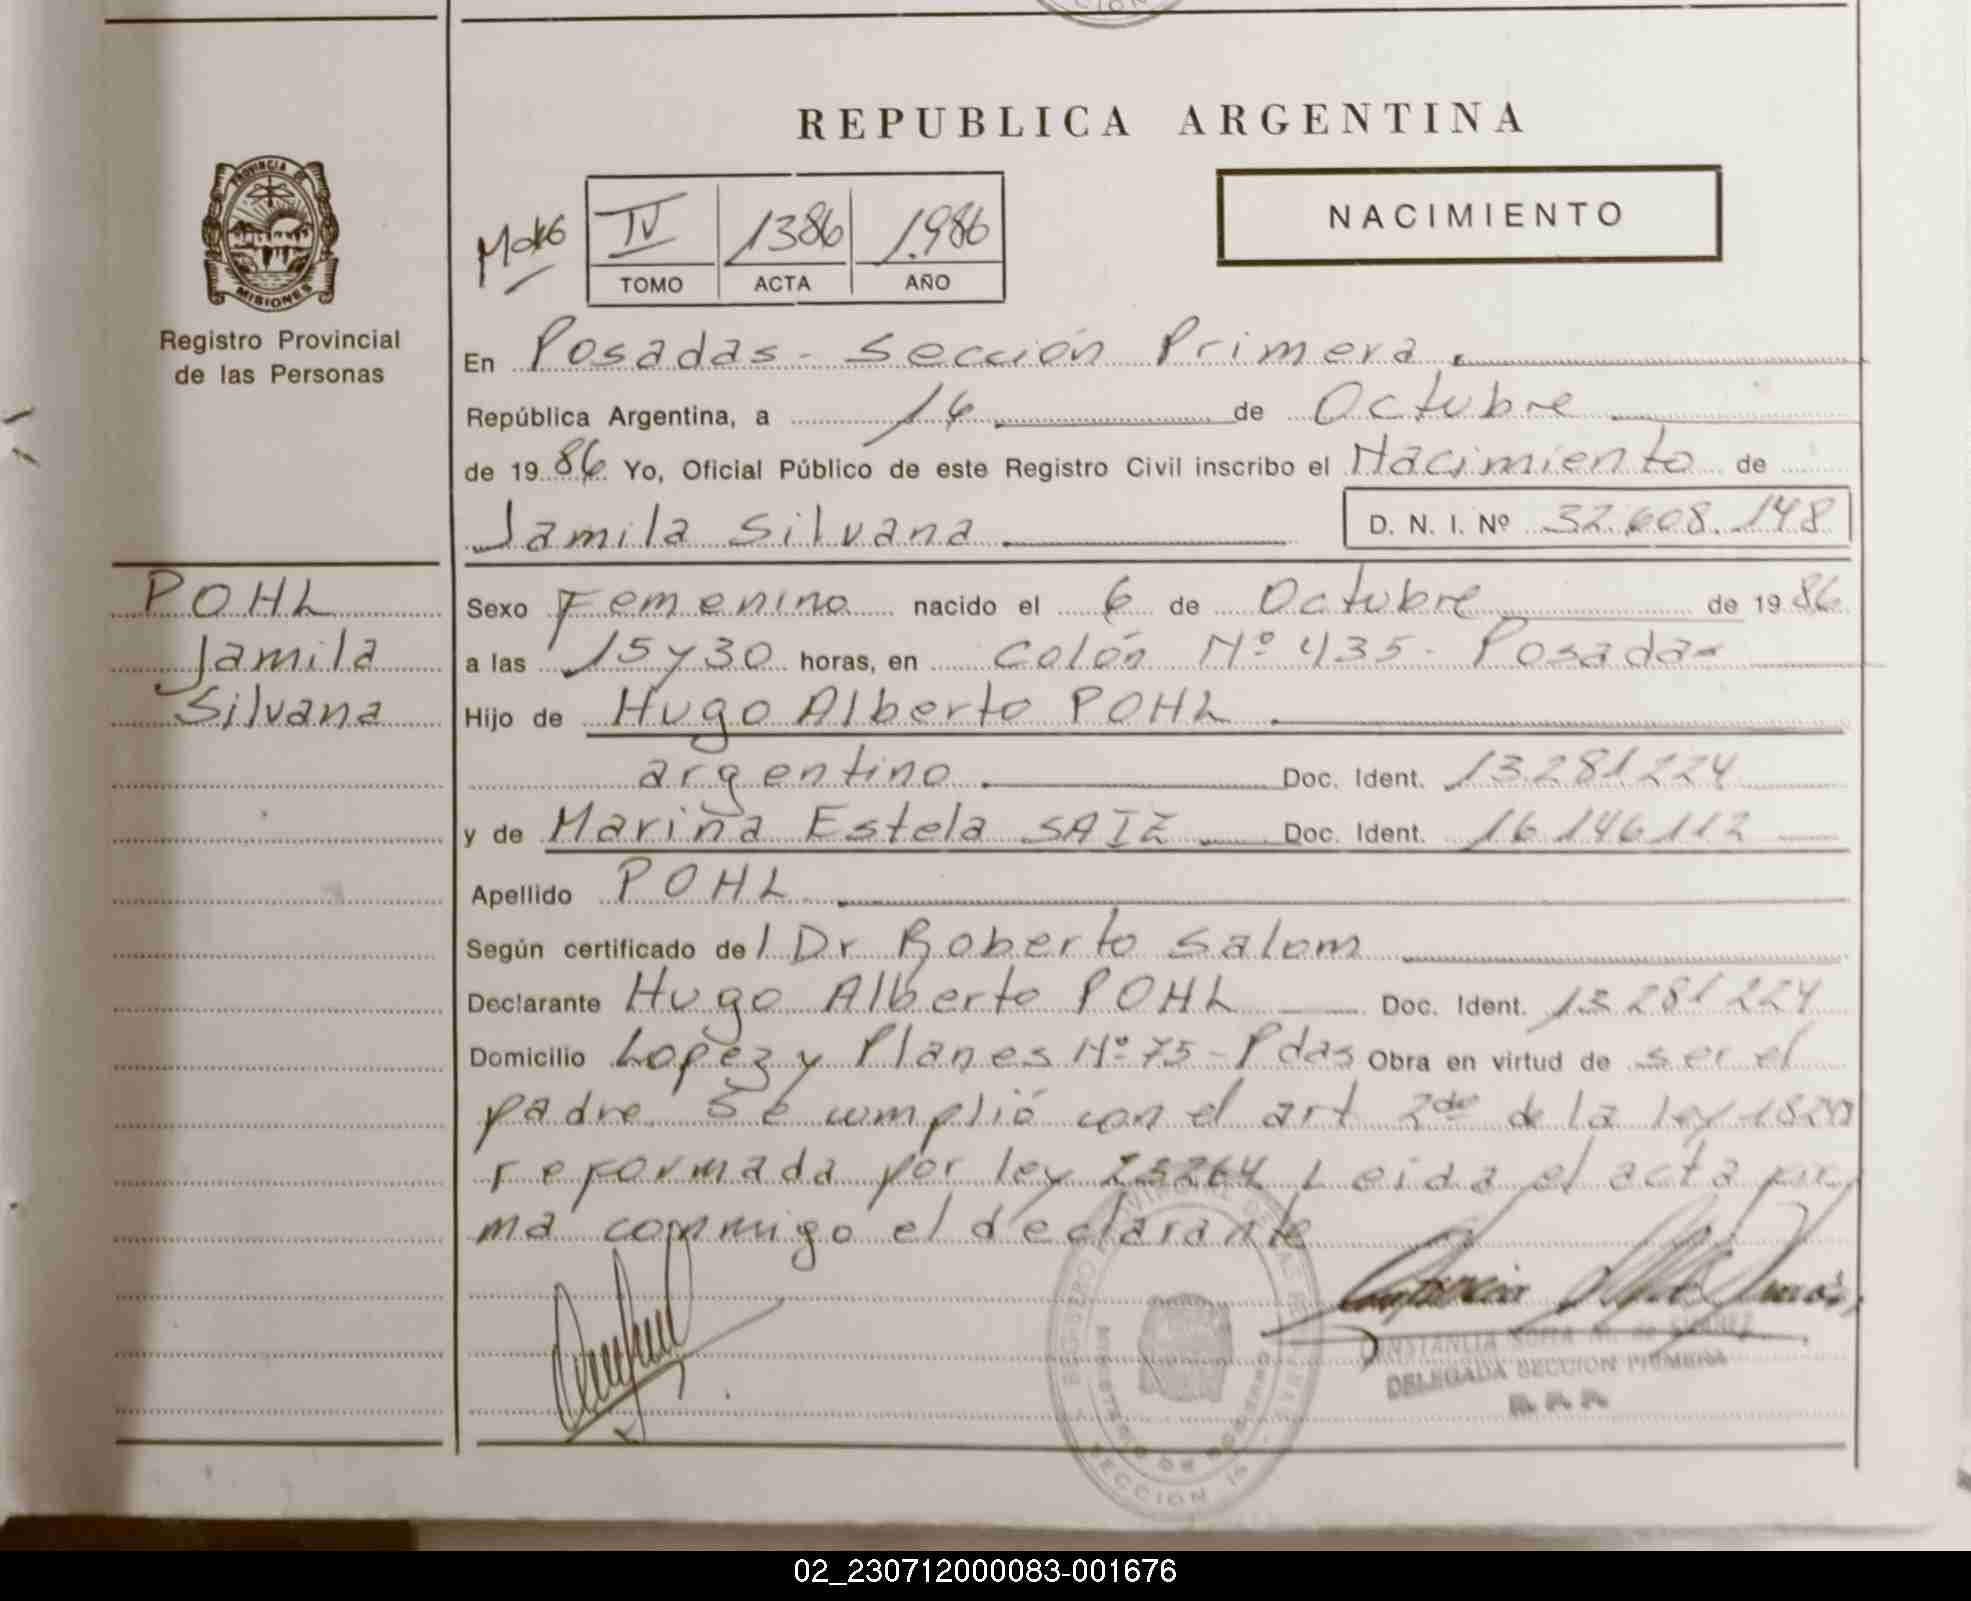 REPUBLICA ARGENTINA
PROVINCIA DE
MISIONES
Registro Provincial
de las Personas
IV 1386 1.986
TOMO ACTA AÑO
NACIMIENTO
En Posadas - Sección Primera.
República Argentina, a 14 de Octubre
de 1986 Yo, Oficial Público de este Registro Civil inscribo el Nacimiento de
Jamila Silvana D. N. I. Nº 32.608.148
POHL
Jamila
Silvana
Sexo Femenino nacido el 6 de Octubre de 1986
a las 15 y 30 horas, en Colón Nº 435 - Posadas
Hijo de Hugo Alberto POHL
argentino Doc. Ident. 13.281.224
y de Mariña Estela SAIZ Doc. Ident. 16.146.112
Apellido POHL
Según certificado del Dr Roberto Salom
Declarante Hugo Alberto POHL Doc. Ident. 13.281.224
Domicilio Lopez y Planes Nº 75 - Pdas Obra en virtud de ser el
padre. Se cumplió con el art 2do de la ley
reformada por ley 23264 Leida el acta fir
ma conmigo el declarante
DELEGADA SECCION PRIMERA
SECCION 1ª
02_230712000083-001676